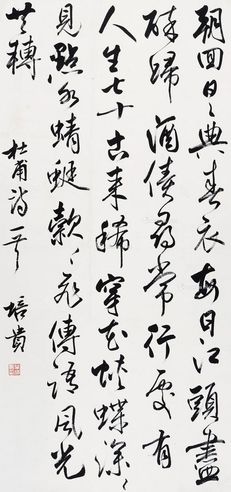 朝回日々典春衣每日江頭盡
醉歸酒債尋常行處有
人生七十古來稀穿花蛺蝶深々
見點水蜻蜓款々飛傳語風光
共轉
杜甫詩一首 培貴